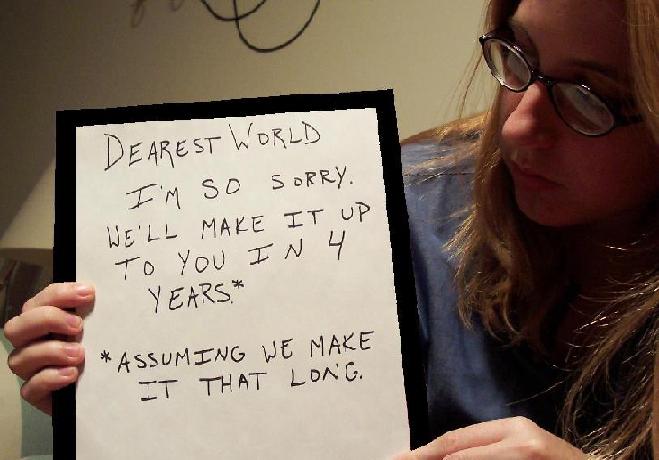 DEAREST WORLD
I'M SO SORRY.
WE'LL MAKE IT UP
TO YOU IN 4
YEARS.*
*ASSUMING WE MAKE
IT THAT LONG.